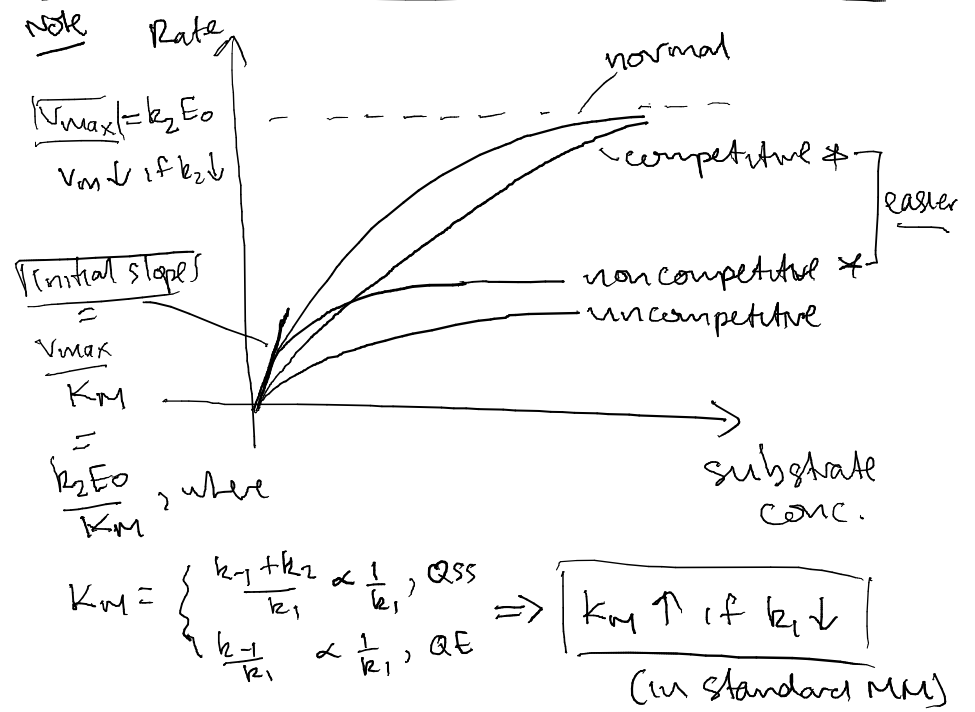 Note
Rate
normal
|Vmax| = k₂E₀
Vm ↓ if k₂ ↓
competitive *
easier
noncompetitive *
uncompetitive
Initial slopes
=
Vmax
KM
=
k₂E₀
KM
, where
substrate
conc.
KM = { k₋₁ + k₂ / k₁ ∝ 1/k₁, QSS
k₋₁ / k₁ ∝ 1/k₁, QE
⇒ KM ↑ if k₁ ↓
(in standard MM)